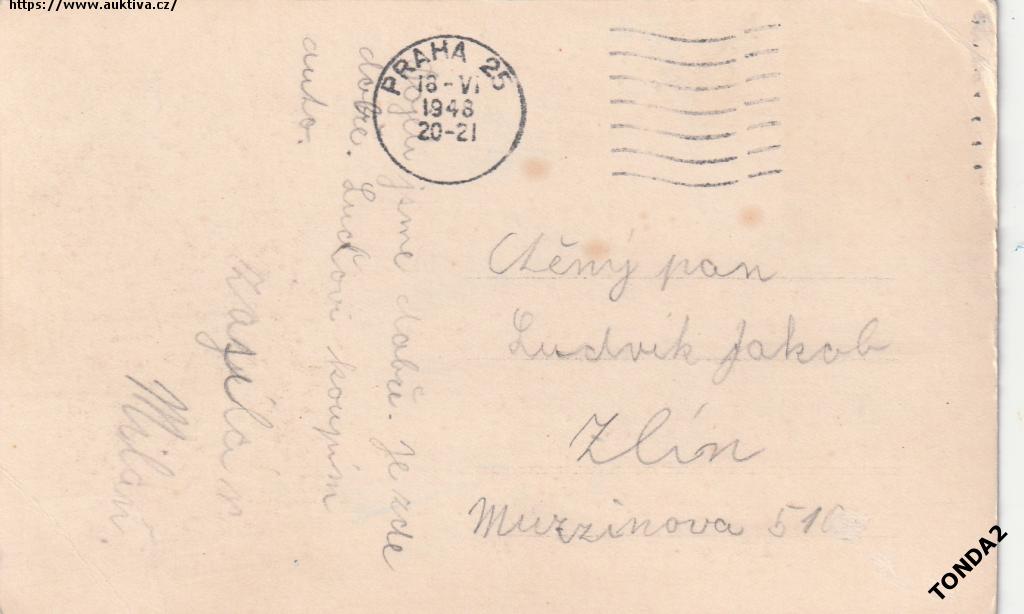 https://www.auktiva.cz/
PRAHA 25
18-VI
1948
20-21
jsme dobře. Je zde
dobře. Luďkovi koupím
auto.
Milan.
Ctěný pan
Ludvík Jakob
Zlín
Muzzinova 510
TONDA2